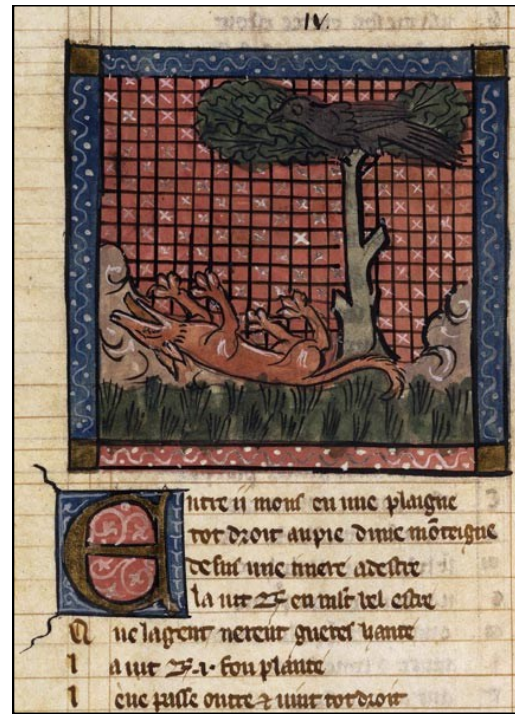 IV.
Entre ii mons en une plaigne
tot droit au pie dune mõteigne
desus une rivere a destre
la vit .R. en mlt bel estre
Q ue la gent nerent gueres hante
I a vit .R. .i. fou plante
l eue passe outre ⁊ vint tot droit